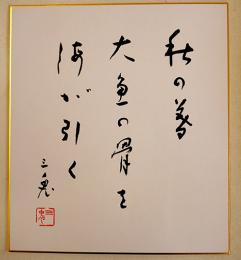 秋の暮
大魚の骨を
海が引く
三鬼